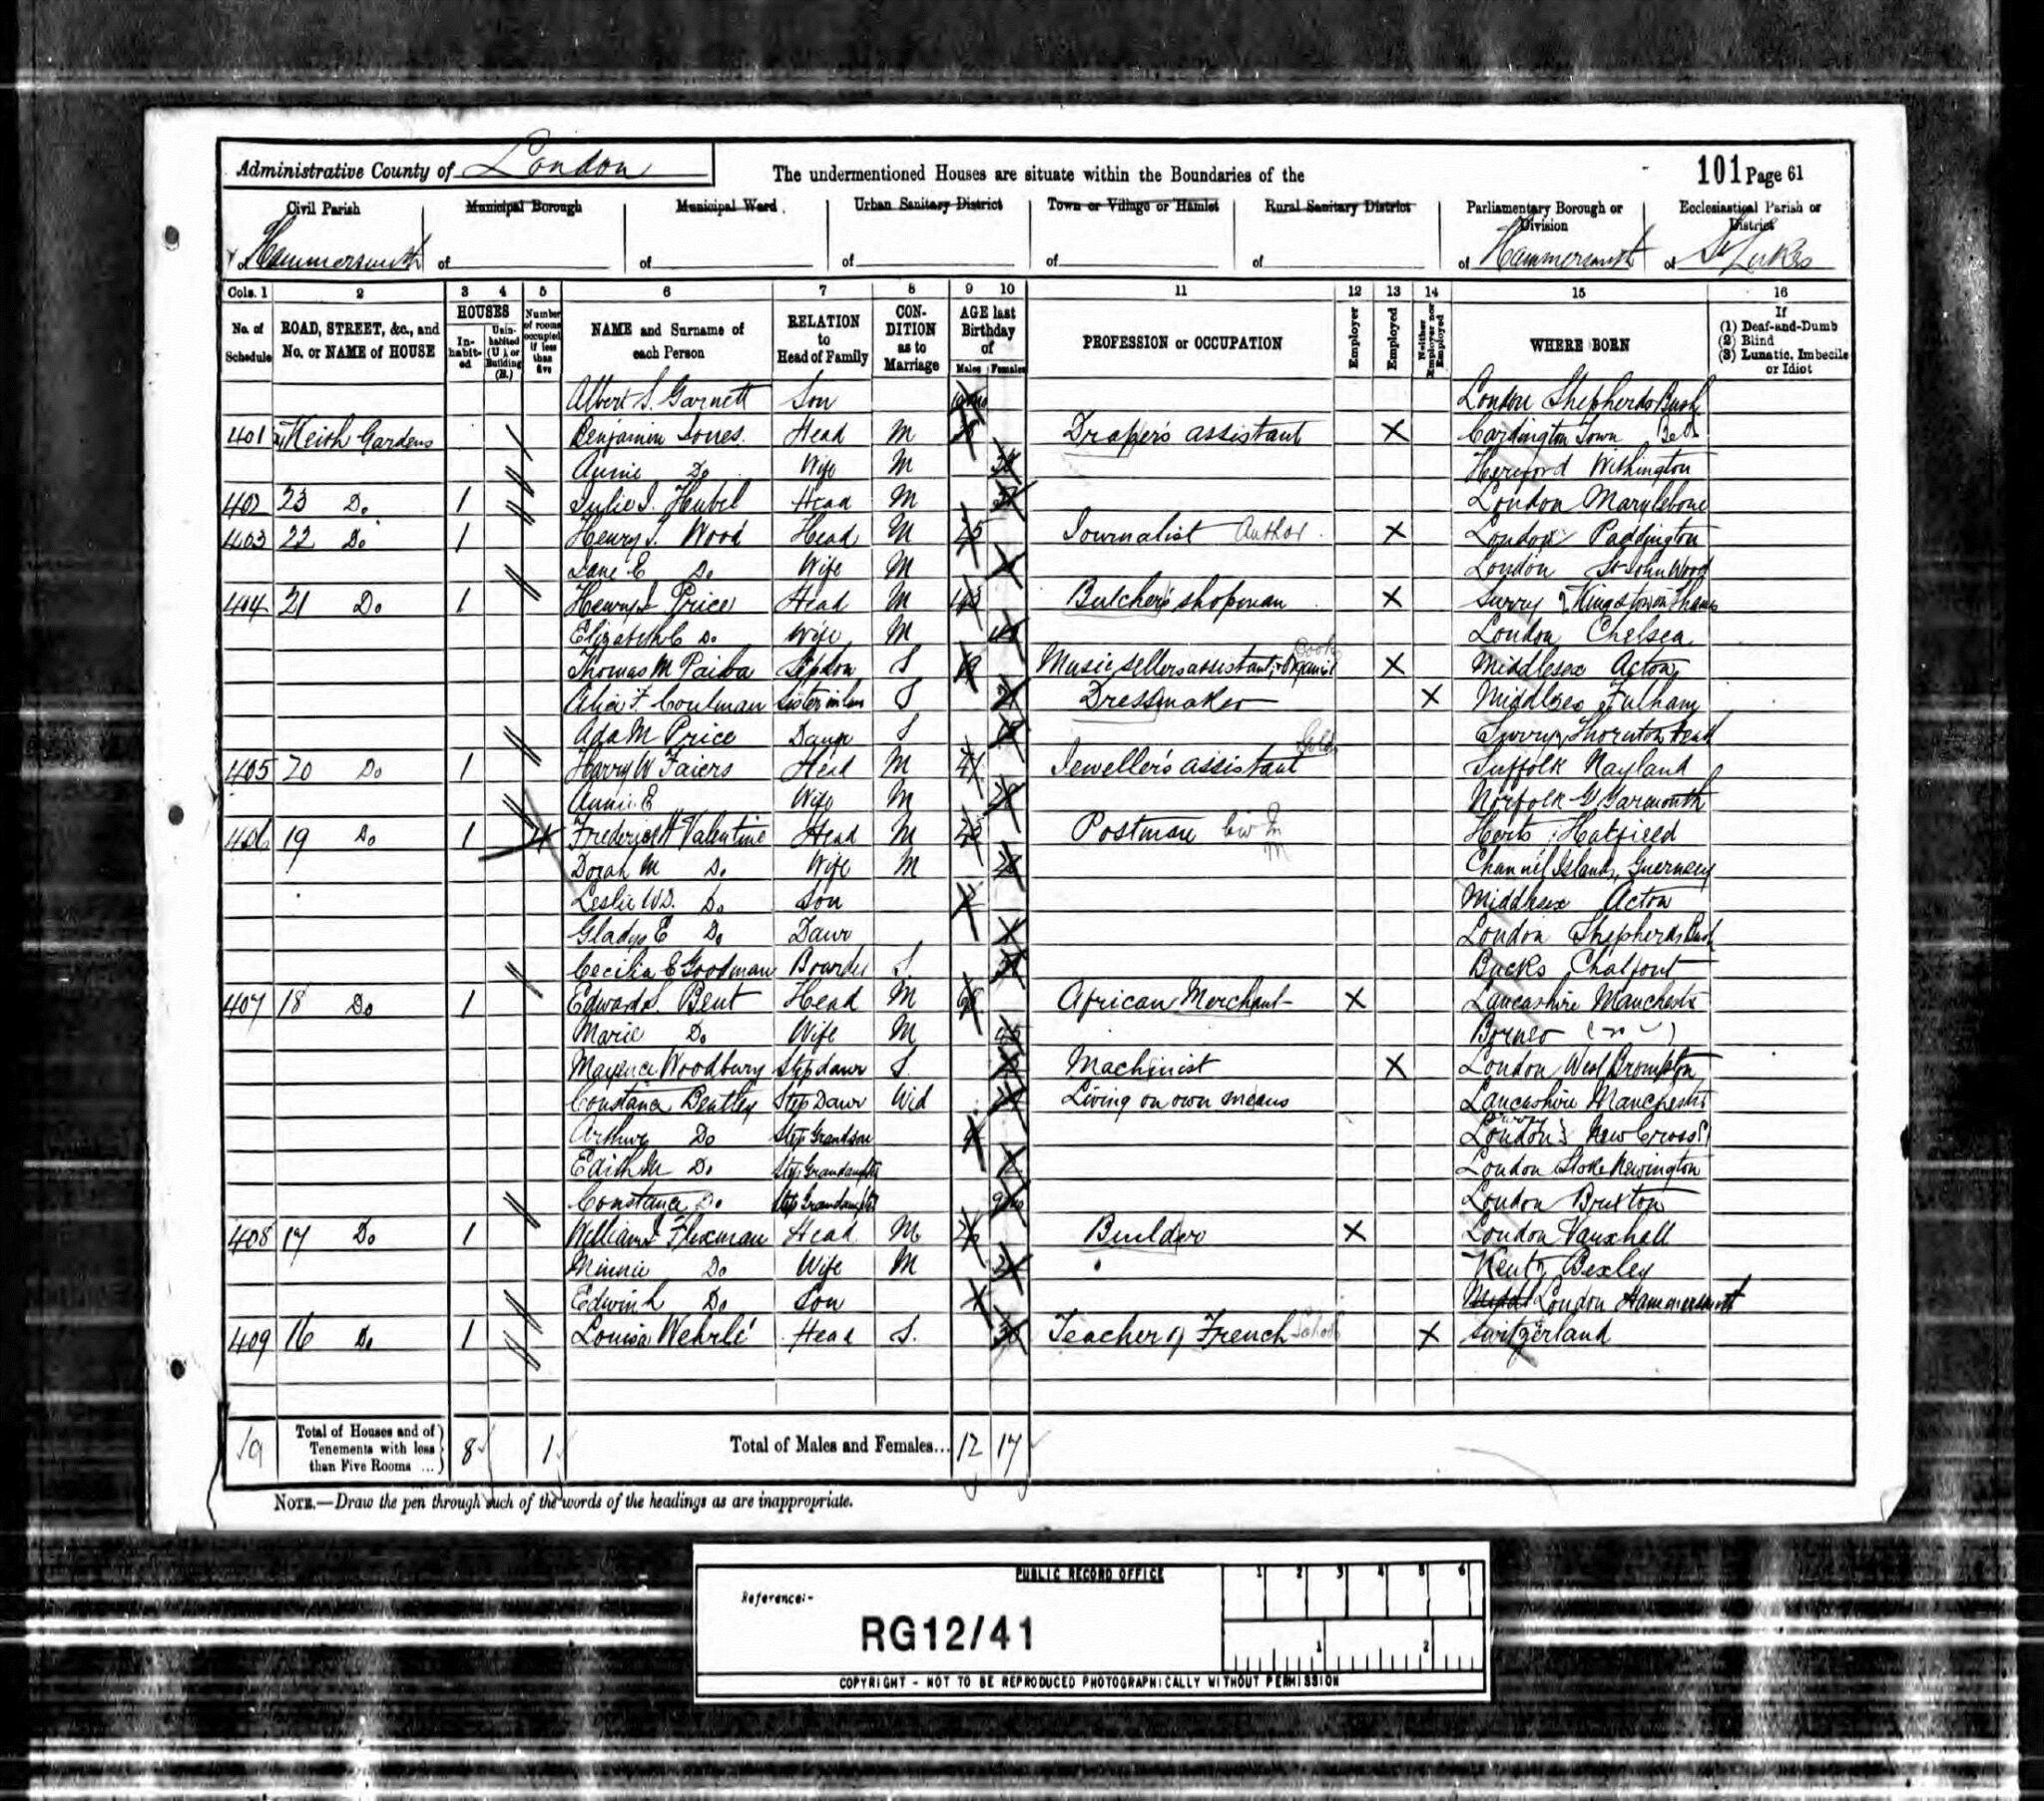 Administrative County of London
The undermentioned Houses are situate within the Boundaries of the
101 Page 61
Civil Parish
Municipal Borough
Municipal Ward
Urban Sanitary District
Town or Village or Hamlet
Rural Sanitary District
Parliamentary Borough or Division
Ecclesiastical Parish or District
of Hammersmith of of of of of of Hammersmith of St Lukes
Cols. 1 2 3 4 5 6 7 8 9 10 11 12 13 14 15 16
No. of Schedule
ROAD, STREET, &c., and No. or NAME of HOUSE
HOUSES
In-habit-ed
Unin-habited (U.), or Building (B.)
Number of rooms occupied if less than five
NAME and Surname of each Person
RELATION to Head of Family
CON-DITION as to Marriage
AGE last Birthday of
Males Females
PROFESSION or OCCUPATION
Employer
Employed
Neither Employer nor Employed
WHERE BORN
If
(1) Deaf-and-Dumb
(2) Blind
(3) Lunatic, Imbecile or Idiot
Albert S. Garnett Son London Shepherds Bush
401 Keith Gardens Benjamin Jones Head M Draper's assistant X Cardington Town Bed
Annie Do Wife M Hereford Withington
402 23 Do 1 Julie J. Hubel Head M London Marylebone
403 22 Do 1 Henry J. Wood Head M 25 Journalist Author X London Paddington
Jane E Do Wife M London St John Wood
404 21 Do 1 Henry J Price Head M 43 Butcher's shopman X Surry Kingston on Thames
Elizabeth C Do Wife M London Chelsea
Thomas M Paiba Stepson S Music sellers assistant & Organist X Middlesex Acton
Alice F. Coulman Sister in law S Dressmaker X Middlesex Fulham
Ada M Price Daur S Surry Thornton Heath
405 20 Do 1 Harry W Faiers Head M 41 Jeweller's assistant Gold Suffolk Nayland
Annie E Wife M Norfolk Gt Yarmouth
406 19 Do 1 4 Frederick H Valentine Head M Postman Herts Hatfield
Dorah M Do Wife M Channel Islands, Guernsey
Leslie W D. Do Son Middlesex Acton
Gladys E Do Daur London Shepherds Bush
Cecilia E Goodman Boarder S. Bucks Chalfont
407 18 Do 1 Edward S. Bent Head M African Merchant X Lancashire Manchester
Marie Do Wife M Borneo
Woodbury Step daur S. Machinist X London West Brompton
Constance Bentley Step Daur Wid Living on own means Lancashire Manchester
Arthur Do Step Grandson London New Cross
Edith M Do Step Grandaughter London Stoke Newington
Constance Do Step Grandaughter London Brixton
408 17 Do 1 William J Flexman Head M 26 Builder X London Vauxhall
Minnie Do Wife M Kent Bexley
Edwin L Do Son London Hammersmith
409 16 Do 1 Louisa Wehrlé Head S. 30 Teacher of French School X Switzerland
19
Total of Houses and of Tenements with less than Five Rooms ... 8 1
Total of Males and Females... 12 17
NOTE.—Draw the pen through such of the words of the headings as are inappropriate.
PUBLIC RECORD OFFICE
Reference:-
1 2 3 4 5 6
RG12/41
1 2
COPYRIGHT - NOT TO BE REPRODUCED PHOTOGRAPHICALLY WITHOUT PERMISSION